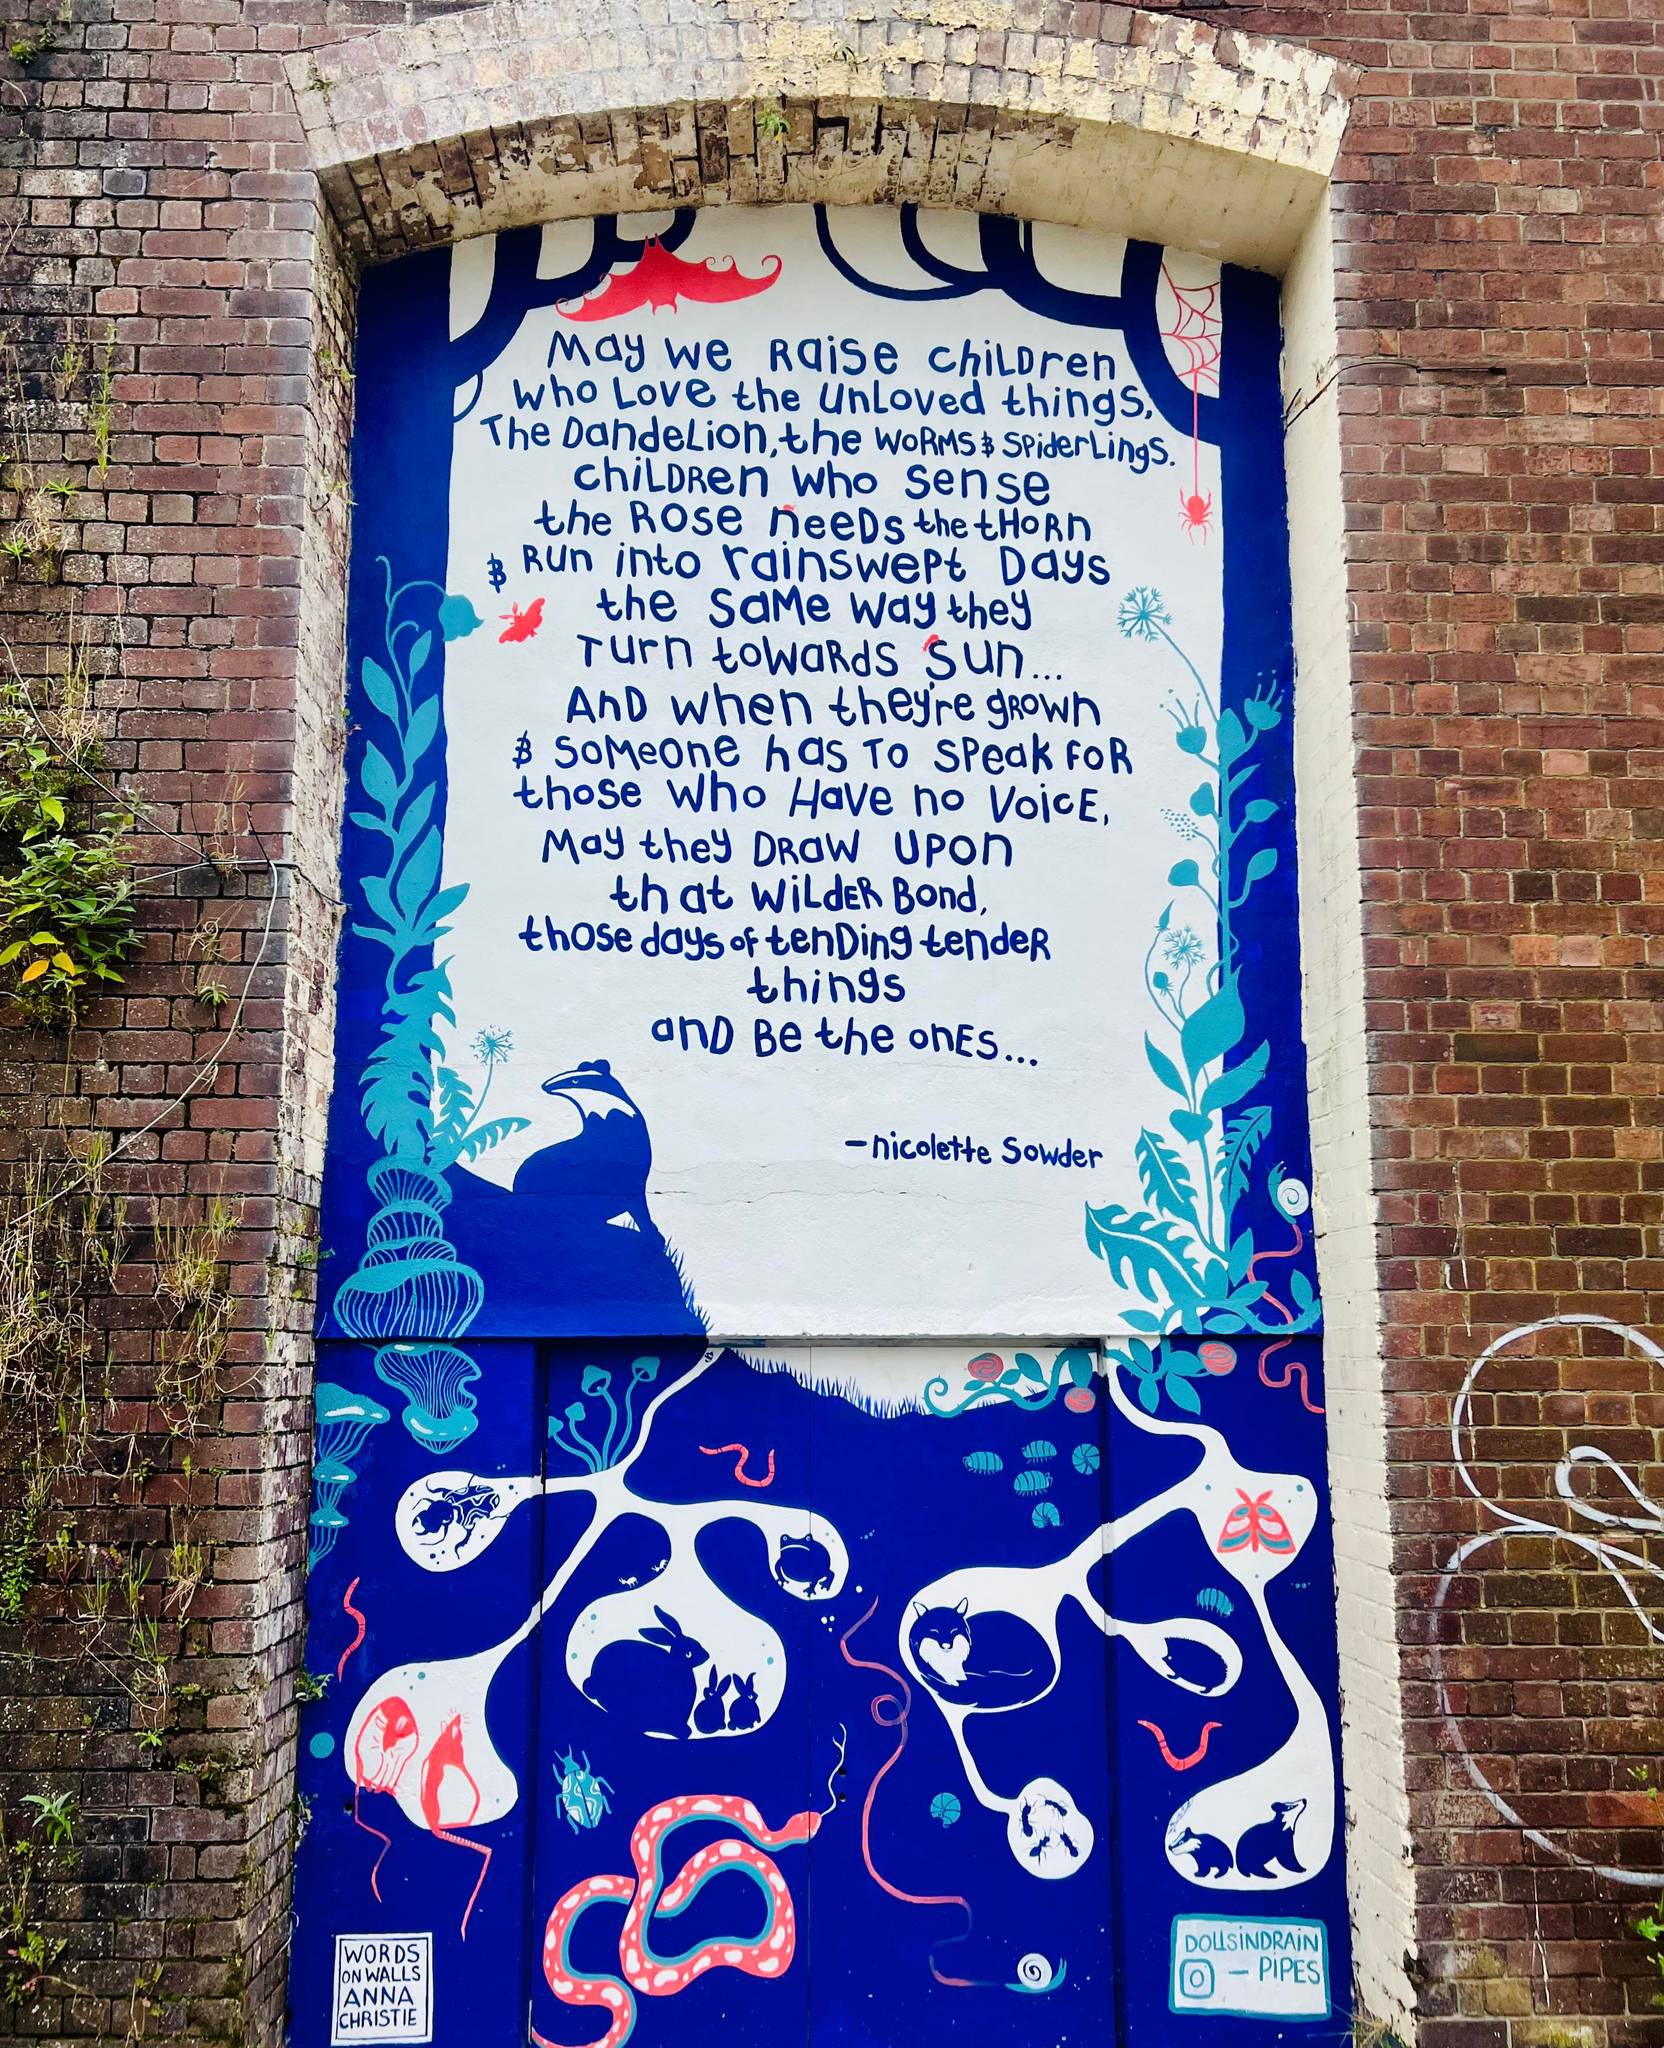 May we Raise Children
who Love the Unloved things,
The Dandelion, the worms & Spiderlings.
Children who sense
the Rose needs the thorn
& Run into rainswept Days
the same way they
Turn towards Sun...
And when they're grown
& Someone has to speak for
those who have no voice,
May they Draw Upon
that Wilder Bond,
those days of tending tender
things
and Be the ones...
-nicolette Sowder
WORDS
ON WALLS
ANNA
CHRISTIE
DOLLSINDRAIN
- PIPES